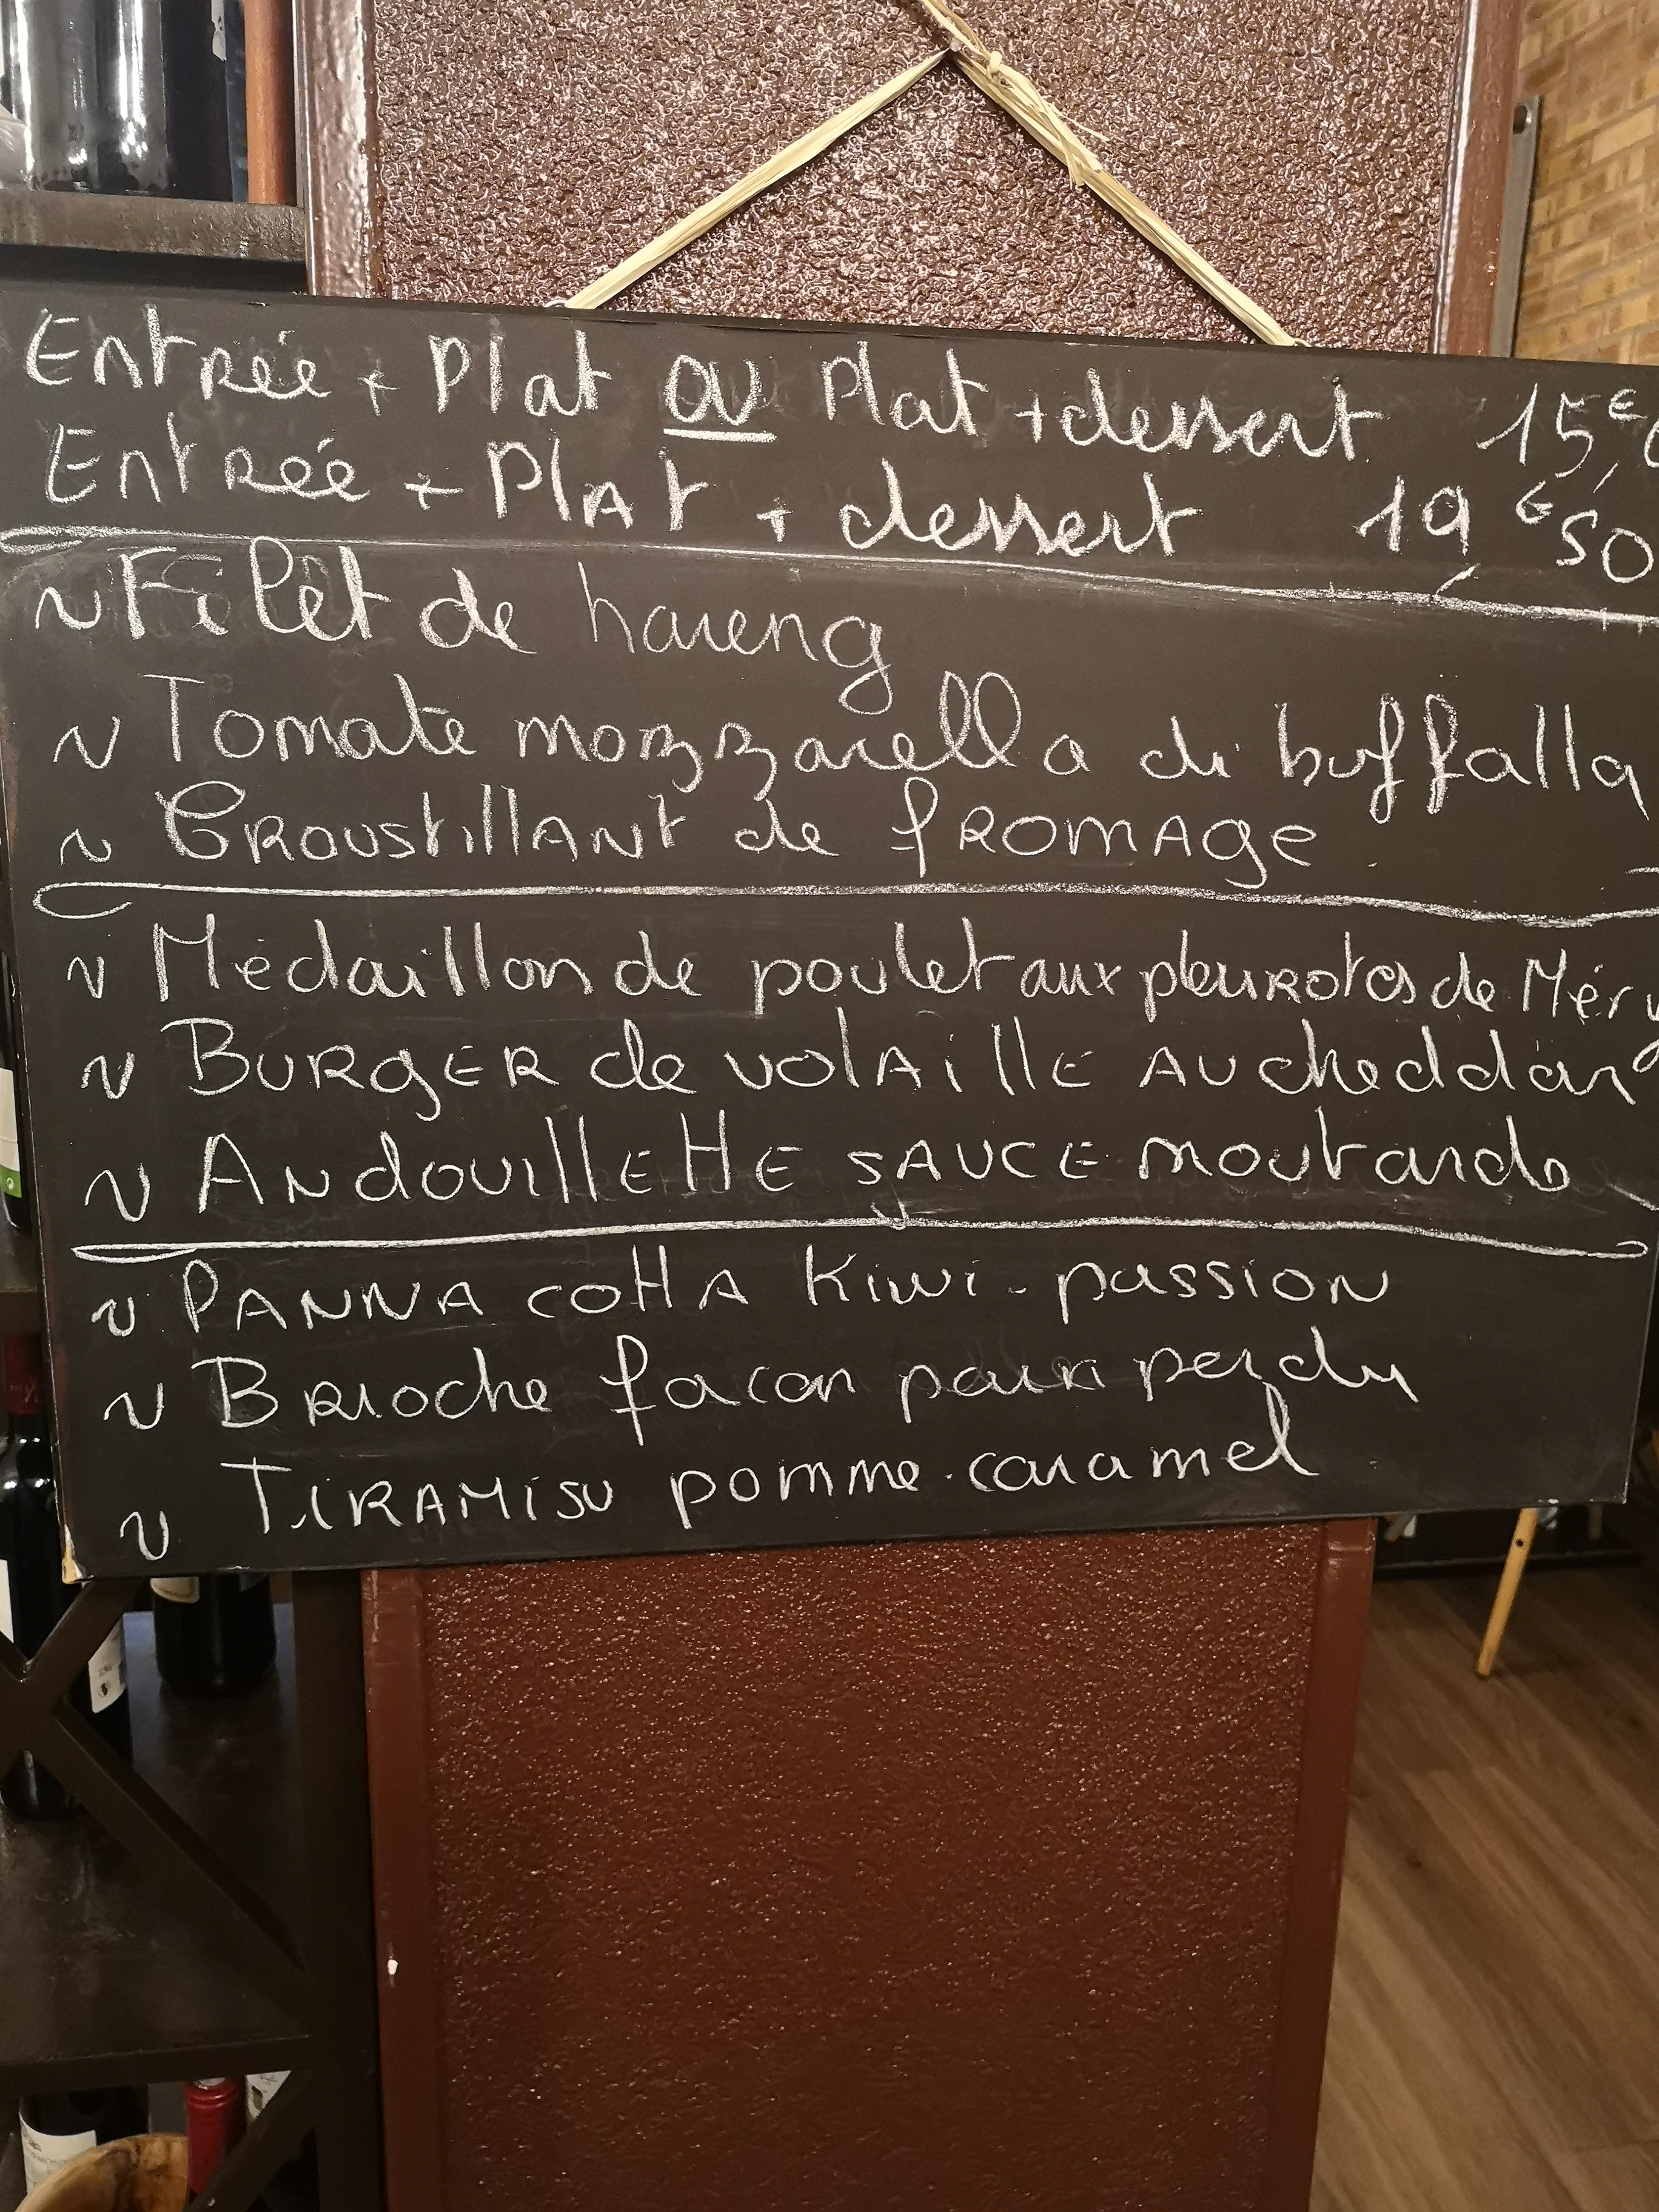 Entrée + Plat ou Plat + dessert 15,€
Entrée + PlAt + dessert 19,€50
~ Filet de hareng
~ Tomate mozzarella di buffalla
~ CROUStillANt de fROMAge
~ Médaillon de poulet aux pleurotes de Méry
~ BURGER de volAillE AU cheddar
~ ANdouillEttE SAUCE moutarde
~ PANNA cottA Kiwi-passion
~ BRioche facon pain perdu
~ TiRAMiSU pomme-caramel